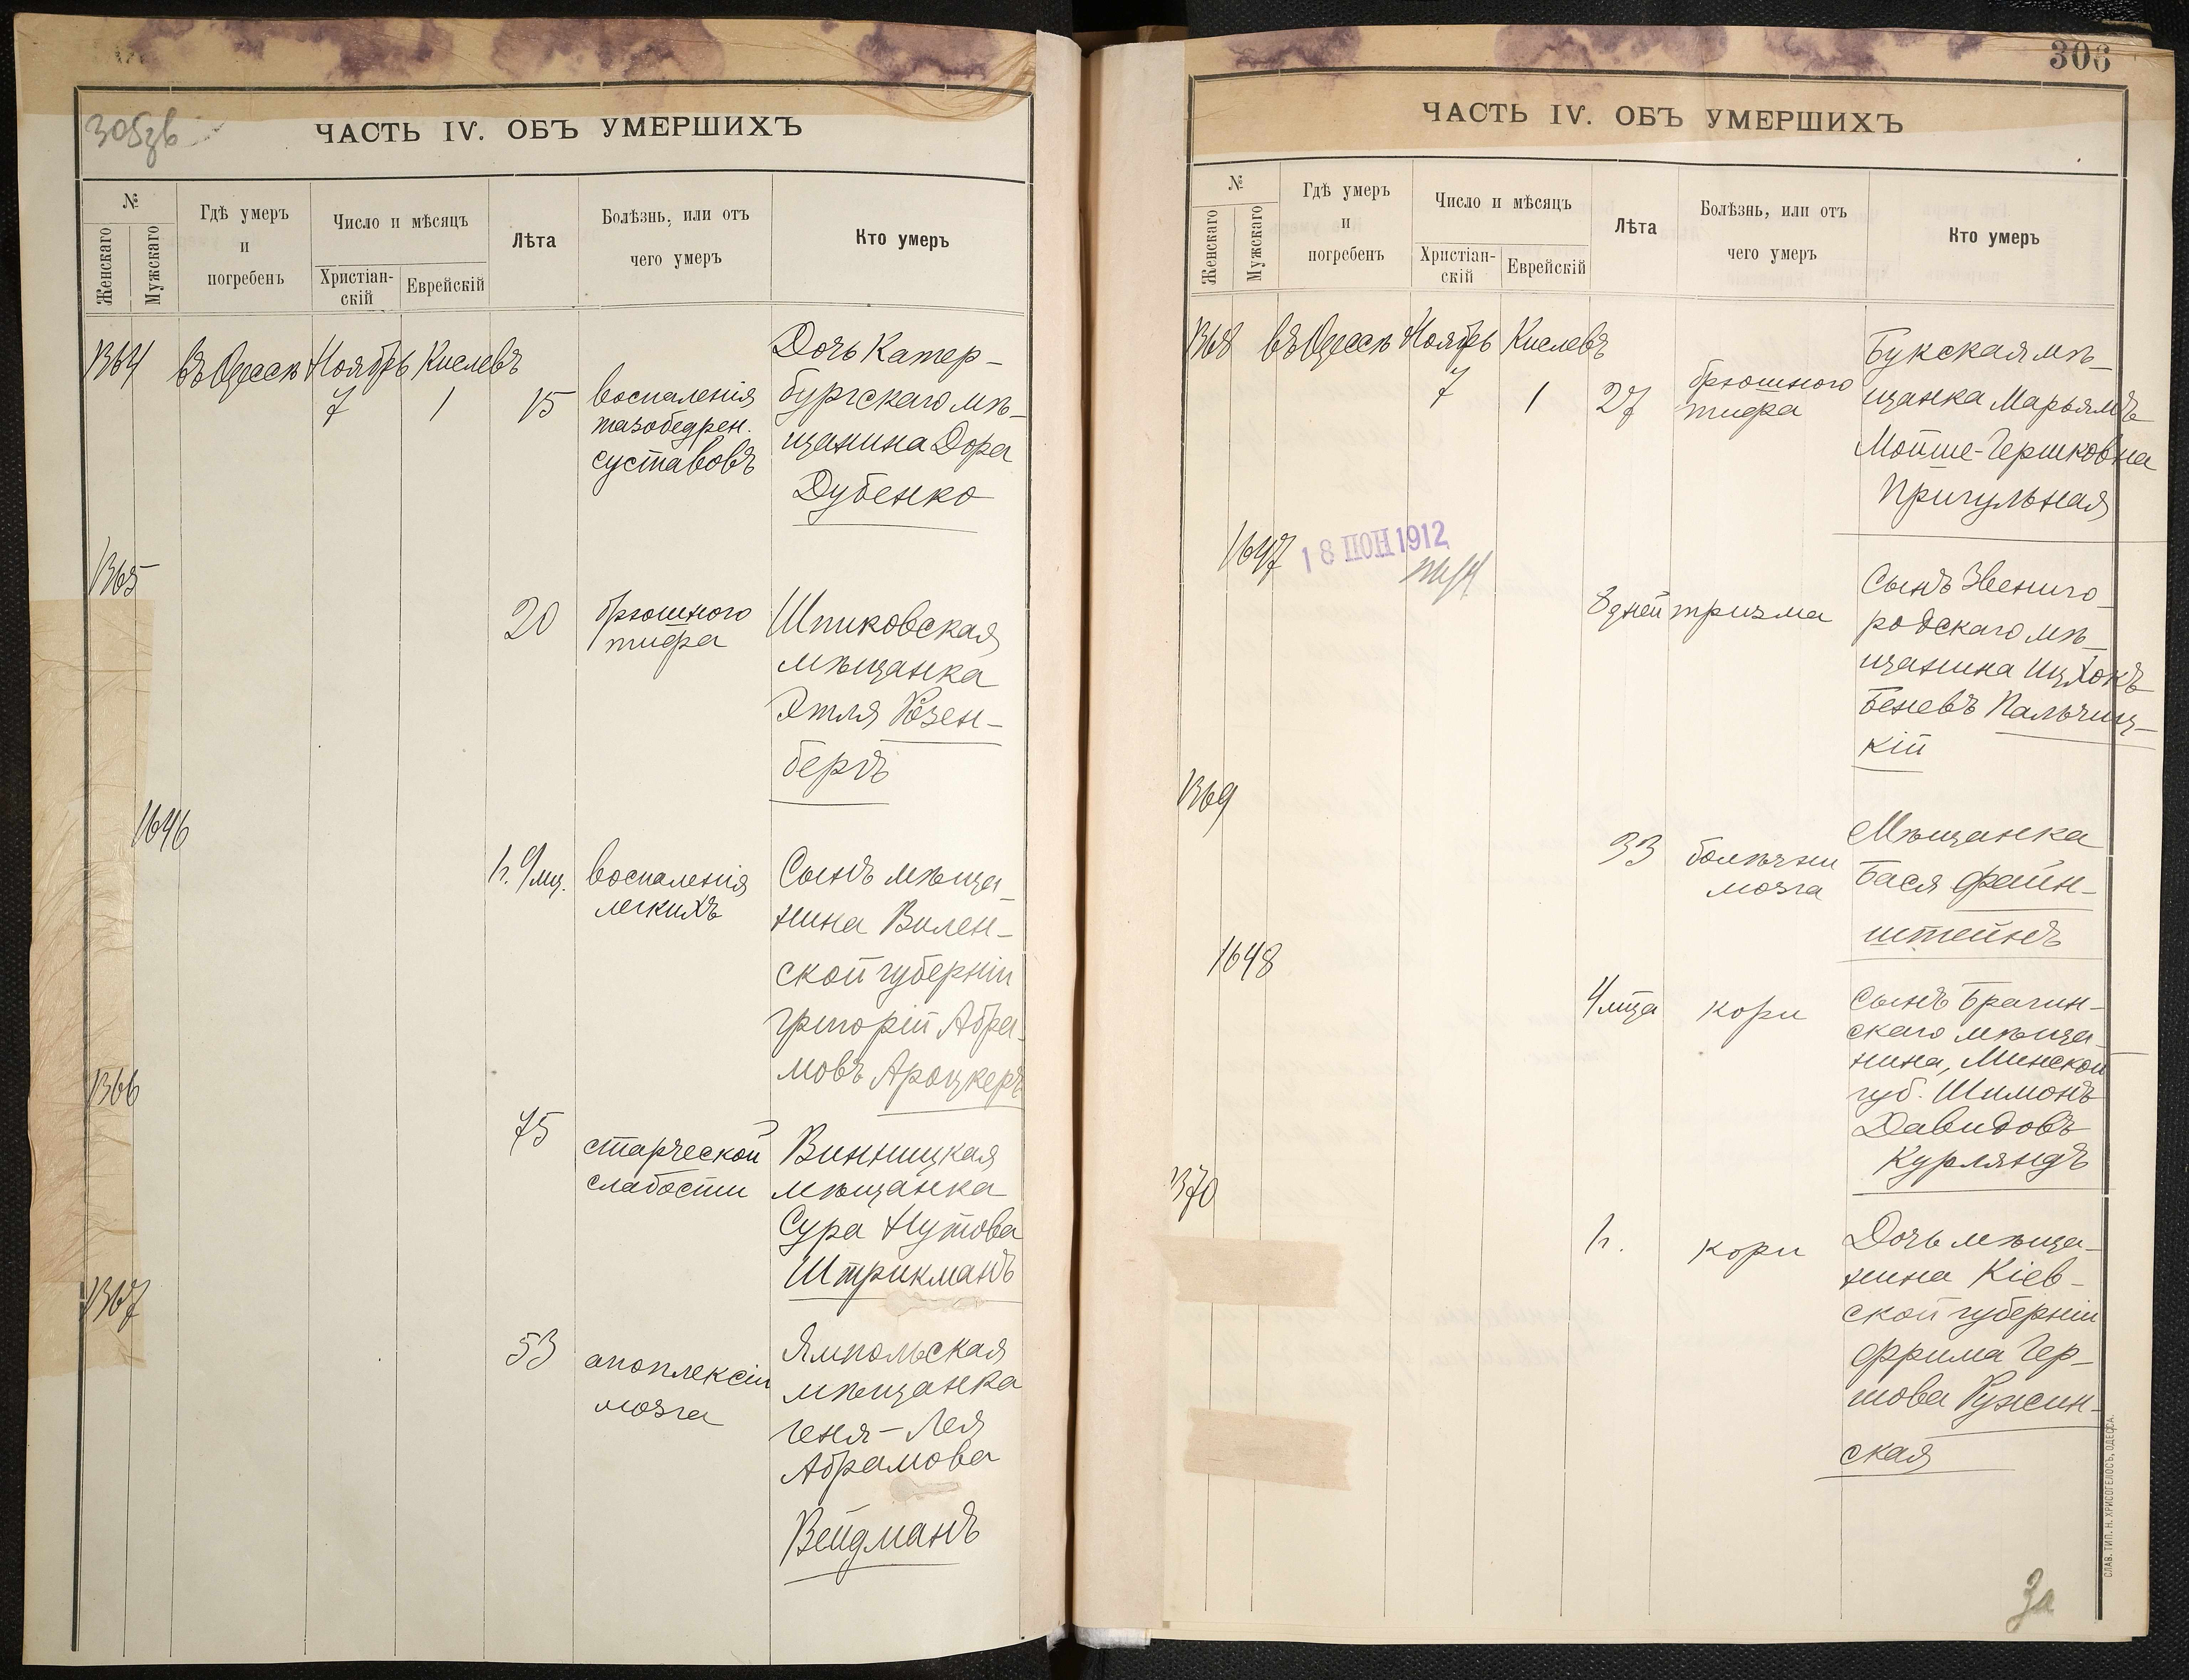 305зв
ЧАСТЬ IV. ОБЪ УМЕРШИХЪ
№
Женскаго
Мужскаго
Гдѣ умеръ
и
погребенъ
Число и мѣсяцъ
Христіан-
скій
Еврейскій
Лѣта
Болѣзнь, или отъ
чего умеръ
Кто умеръ
1364 въ Одессѣ Ноябрь Кислевъ
7 1 15
воспаленія
тазобедрен.
суставовъ
Дочь Катер-
бургскаго мѣ-
щанина Дора
Дубенко
1365
20
брюшного
тифа
Шпиковская
мѣщанка
Этля Розен-
бергъ
1646
1 г. 9/мц.
воспаленія
легкихъ
Сынъ мѣща-
нина Вилен-
ской губерніи
Григорій Абра-
мовъ Ароцкеръ
1366
75
старческой
слабости
Винницкая
мѣщанка
Сура Нутова
Штрикманъ
1367
53
апоплексіи
мозга
Ямпольская
мѣщанка
Геня-Лея
Абрамова
Вейдманъ
306
ЧАСТЬ IV. ОБЪ УМЕРШИХЪ
№
Женскаго
Мужскаго
Гдѣ умеръ
и
погребенъ
Число и мѣсяцъ
Христіан-
скій
Еврейскій
Лѣта
Болѣзнь, или отъ
чего умеръ
Кто умеръ
1368 въ Одессѣ Ноябрь Кислевъ
7 1 27
брюшного
тифа
Букская мѣ-
щанка Марьямъ
Мойше-Гершковна
Пригульная
1647
18 IЮН 1912
8 дней
тризма
Сынъ Звениго-
родскаго мѣ-
щанина Ицхокъ
Беневъ Пальчиц-
кій
1369
33
болѣзни
мозга
Мѣщанка
Бася Файн-
штейнъ
1648
4 мца
кори
Сынъ Брагин-
скаго мѣща-
нина, Минской
губ. Шимонъ
Давидовъ
Курляндъ
1370
1 г.
кори
Дочь мѣща-
нина Кіев-
ской губерніи
Фрима Гер-
шова Ружин-
ская
СЛАВ. ТИП. Н. ХРИСОГЕЛОСЪ, ОДЕССА.